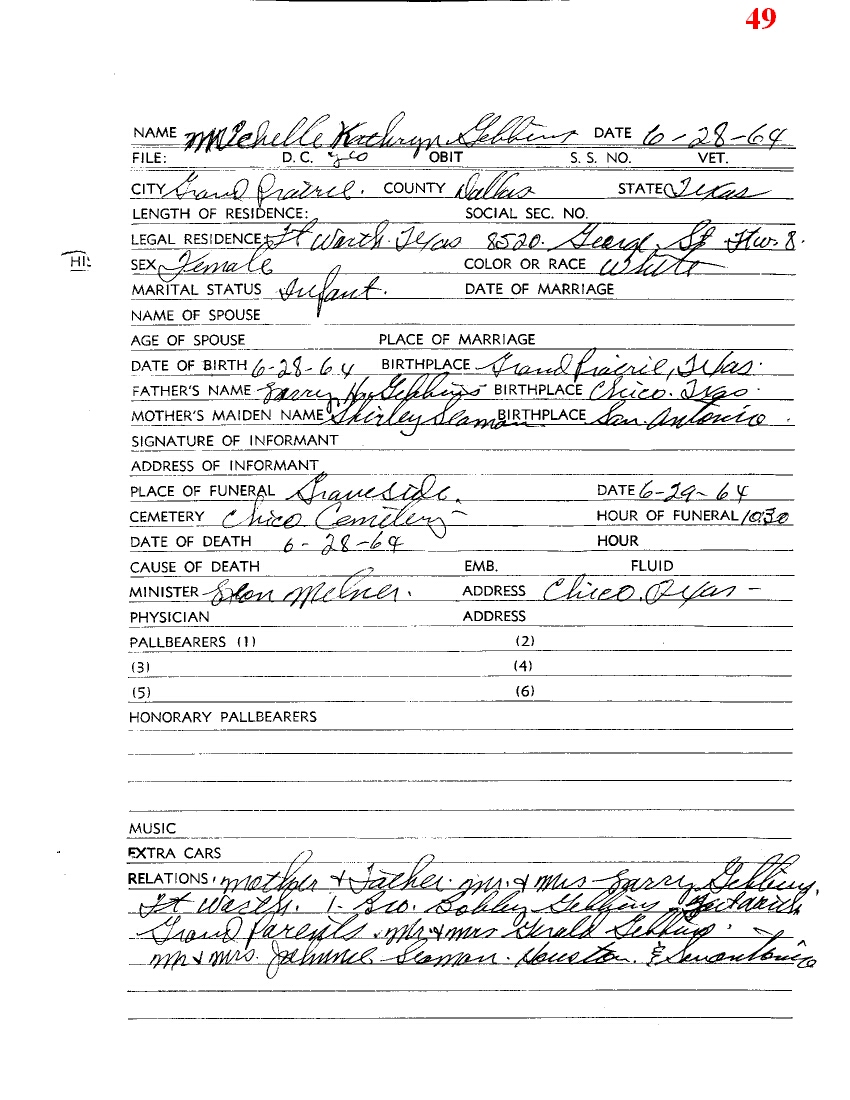 49
NAME Michelle Kathryn Gibbins DATE 6-28-64
FILE: D.C. OBIT S. S. NO. VET.
CITY Grand Prairie. COUNTY Dallas STATE Texas
LENGTH OF RESIDENCE: SOCIAL SEC. NO.
LEGAL RESIDENCE Ft Worth Texas 8520. St
HI:
SEX Female COLOR OR RACE White
MARITAL STATUS Infant. DATE OF MARRIAGE
NAME OF SPOUSE
AGE OF SPOUSE PLACE OF MARRIAGE
DATE OF BIRTH 6-28-64 BIRTHPLACE Grand Prairie, Texas.
FATHER'S NAME Larry Gibbins BIRTHPLACE Chico. Texas.
MOTHER'S MAIDEN NAME Shirley Seaman BIRTHPLACE San Antonio.
SIGNATURE OF INFORMANT
ADDRESS OF INFORMANT
PLACE OF FUNERAL Graveside. DATE 6-29-64
CEMETERY Chico Cemetery HOUR OF FUNERAL 1030
DATE OF DEATH 6-28-64 HOUR
CAUSE OF DEATH EMB. FLUID
MINISTER Melner. ADDRESS Chico. Texas -
PHYSICIAN ADDRESS
PALLBEARERS (1) (2)
(3) (4)
(5) (6)
HONORARY PALLBEARERS
MUSIC
EXTRA CARS
RELATIONS: mother & Father. mr. & mrs Larry Gibbins,
Ft Worth. 1- Bro. Bobby Gibbins
Grand Parents. Mr & mrs Gerald Gibbins.
mr & mrs. Johnnie Seaman. Houston. & San antonio